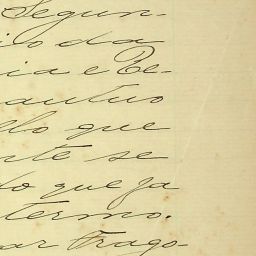 Segun-
io da
ia e Re-
antuo
llo que
nte se
do que ja
termo.
ar Frago-